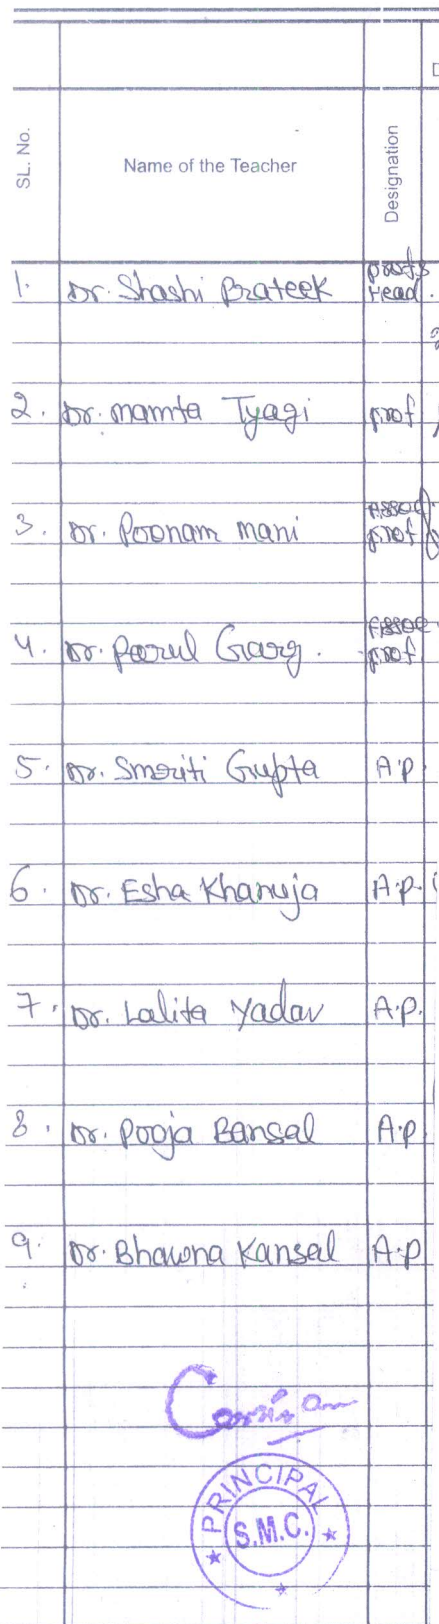 SL. No. Name of the Teacher Designation
1. Dr. Shashi Prateek prof &
Head.
2. Dr. mamta Tyagi prof
3. Dr. Poonam mani Assoc.
prof
4. Dr. Parul Garg. Assoc
prof
5. Dr. Smriti Gupta A.P.
6. Dr. Esha Khanuja A.P.
7. Dr. Lalita Yadav A.P.
8. Dr. Pooja Bansal A.P.
9. Dr. Bhawna Kansal A.P
PRINCIPAL
S.M.C.